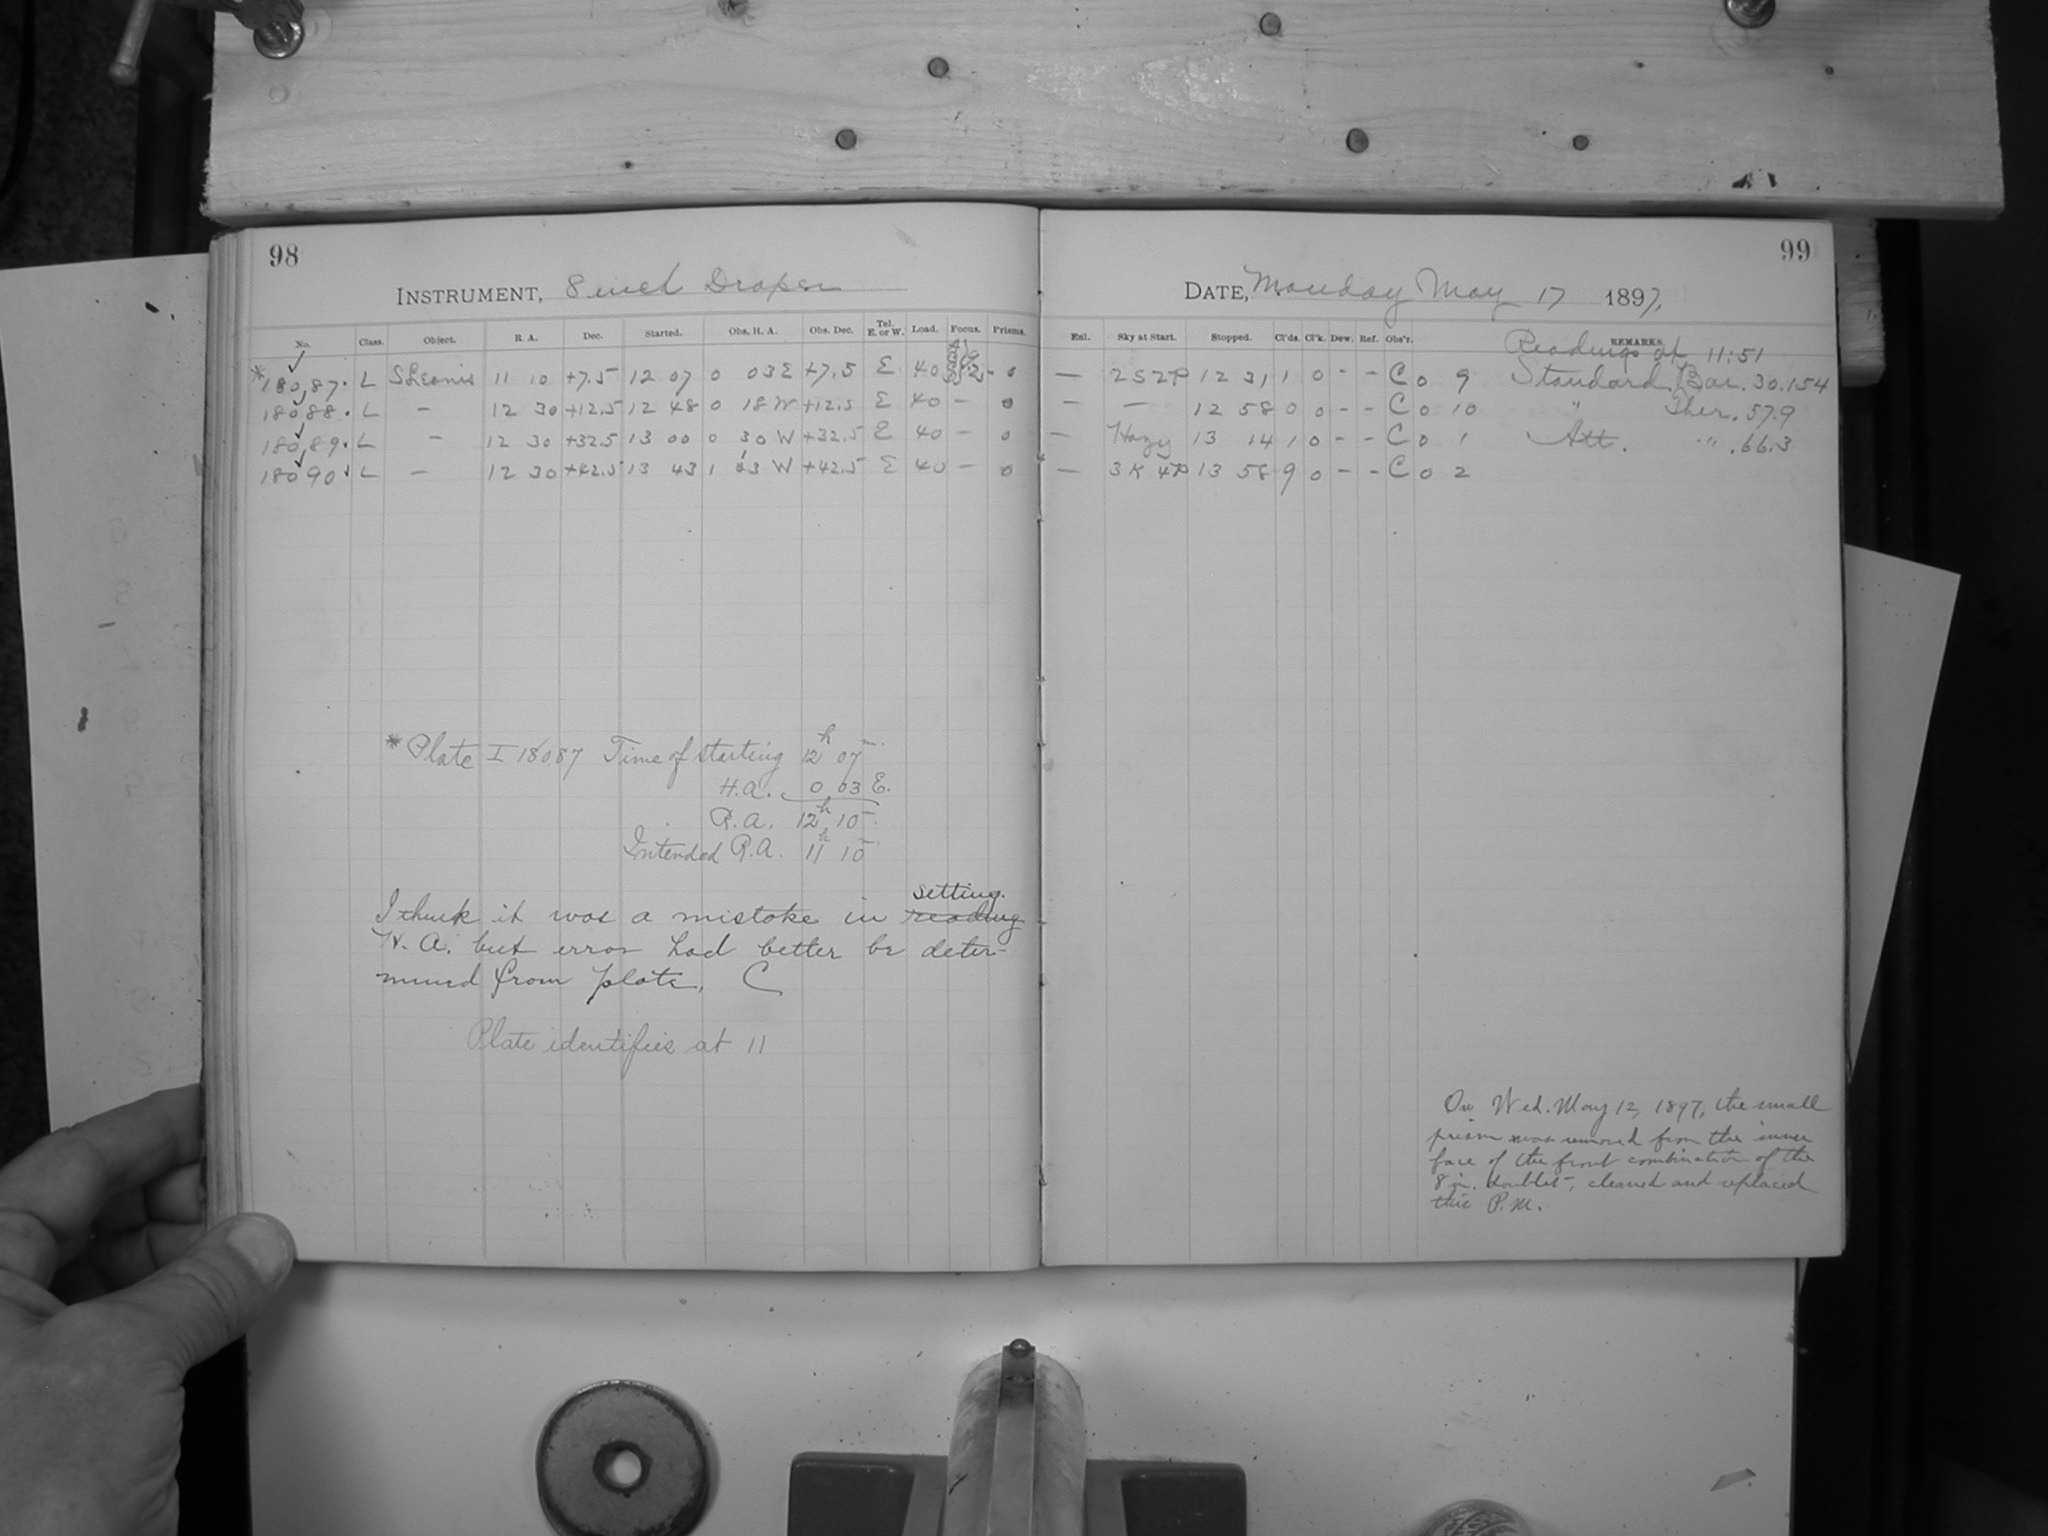 98
INSTRUMENT, 8 inch Draper
No. Class. Object. R. A. Dec. Started. Obs. H. A. Obs. Dec. Tel. E. or W. Load. Focus. Prisms.
*18087. L S Leonis 11 10 +7.5 12 07 0 03 E +7.5 E 40 0
18088. L - 12 30 +12.5 12 48 0 18 W +12.5 E 40 - 0
18089. L - 12 30 +32.5 13 00 0 30 W +32.5 E 40 - 0
18090. L - 12 30 +42.5 13 43 1 13 W +42.5 E 40 - 0
* Plate I 18087 Time of starting 12h 07m.
H.A. 0 03 E.
R.A. 12h 10m.
Intended R.A. 11h 10m.
setting.
I think it was a mistake in reading
H. A. but error had better be deter-
mined from plate. C
Plate identifies at 11
99
DATE, Monday May 17 1897,
Enl. Sky at Start. Stopped. Cl'ds. Cl'k. Dew. Ref. Obs'r. REMARKS.
Readings at 11:51
— 2S 2P 12 31 1 0 - - C 0 9 Standard Bar. 30.154
— — 12 58 0 0 - - C 0 10 " Ther. 57.9
— Hazy 13 14 1 0 - - C 0 1 Att. " .66.3
— 3K 4P 13 58 9 0 - - C 0 2
On Wed. May 12, 1897, the small
prism was removed from the inner
face of the front combination of the
8 in. doublet, cleaned and replaced
this P.M.